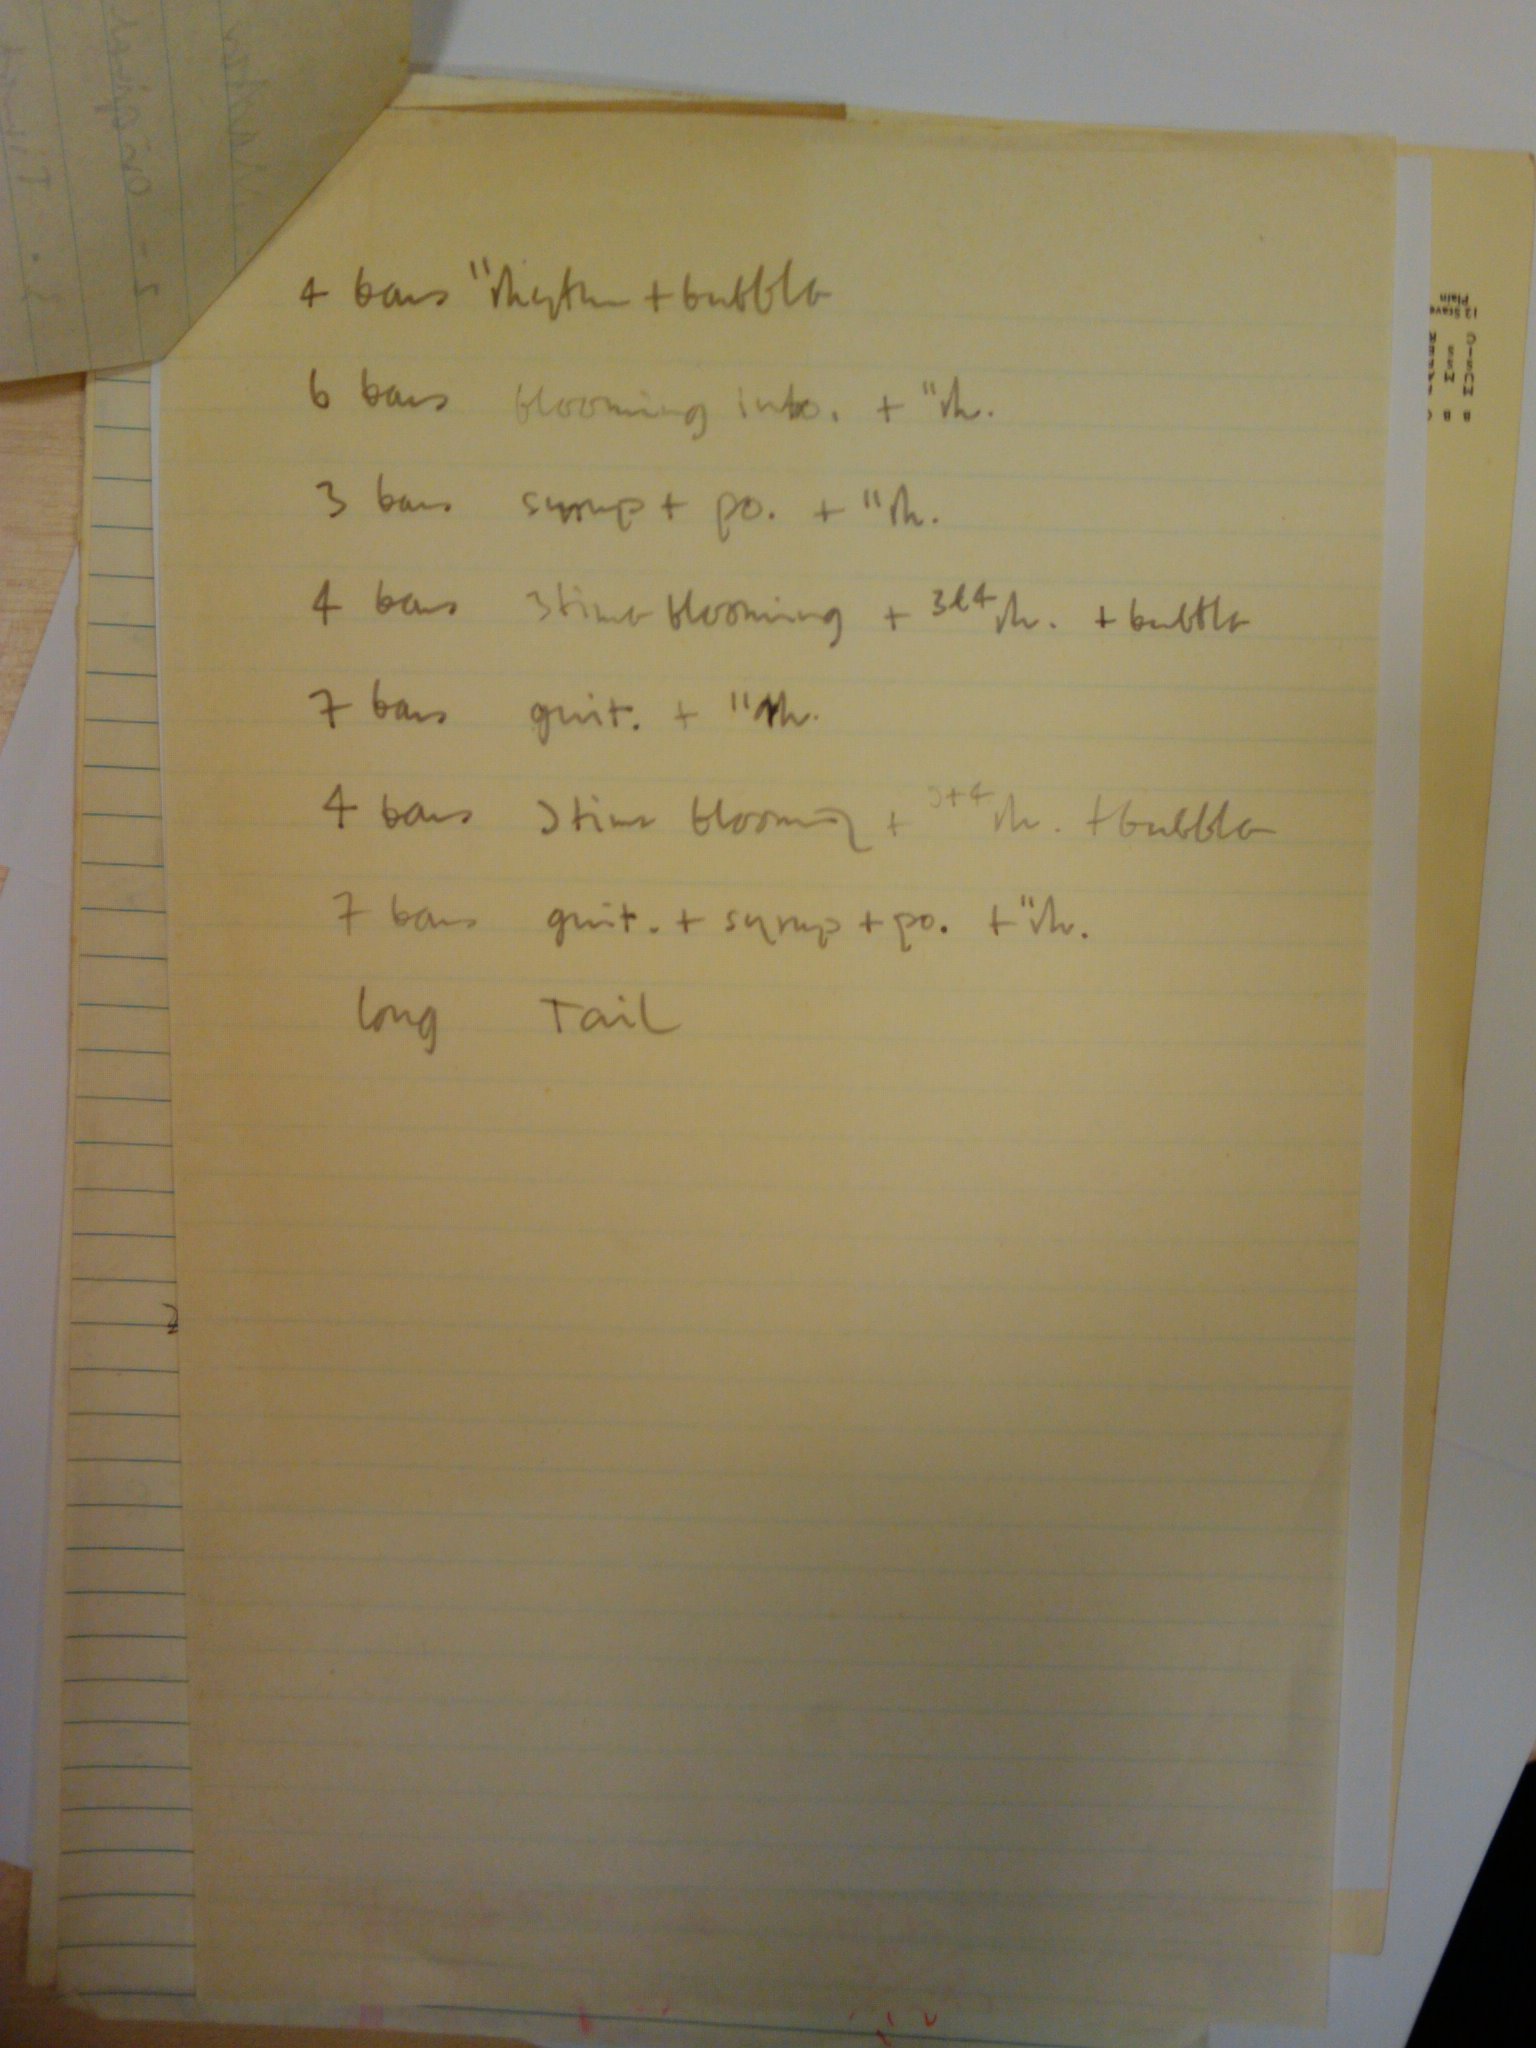 4 bars "rhythm + bubble
6 bars blooming intro. + "rh.
3 bars syrup + po. + "rh.
4 bars 3 time blooming + 3&4 rh. + bubble
7 bars guit. + "rh.
4 bars 3 time blooming + 3+4 rh. + bubble
7 bars guit. + syrup + po. + "rh.
long Tail
12 Stave
Plain